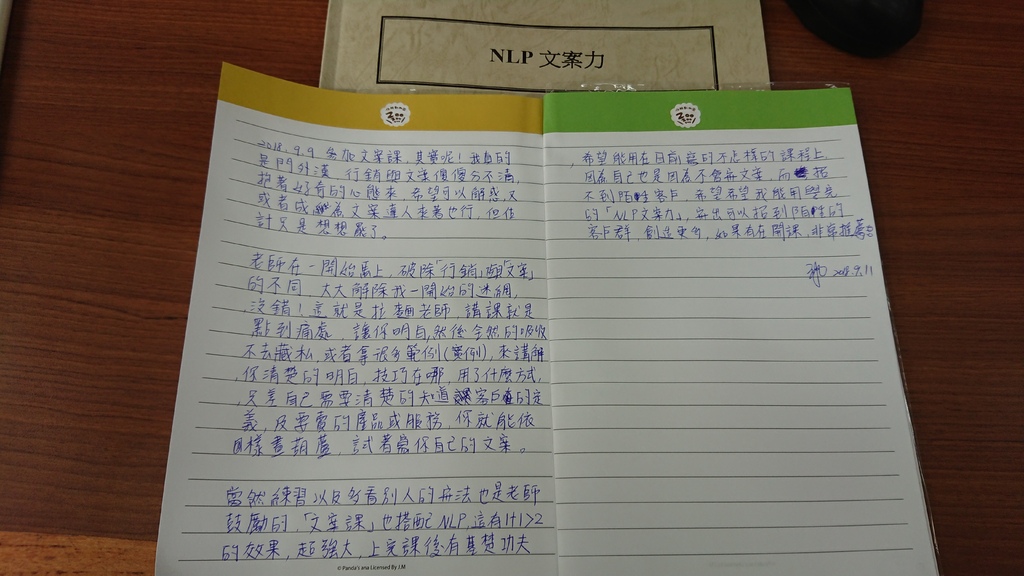 NLP 文案力
2018.9.9 參加文案課，其實呢！我真的
是門外漢，行銷與文案傻傻分不清，
抱著好奇的心態來，希望可以解惑，又
或者成為文案達人來著也行，但估
計只是想想罷了。
老師在一開始馬上，破除「行銷」與「文案」
的不同，大大解除我一開始的迷網，
沒錯！這就是拉麵老師，講課就是
點到痛處，讓你明白，然後全然的吸收
不去藏私，或者拿很多範例(案例)，來講解
你清楚的明白，技巧在哪，用了什麼方式，
只差自己需要清楚的知道客戶的定
義，及要賣的產品或服務，你就能依
樣畫葫蘆，試著寫你自己的文案。
當然練習以及多看別人的寫法也是老師
鼓勵的，「文案課」也搭配NLP，這有1+1>2
的效果，超強大，上完課後有基楚功夫
© Panda's ana Licensed By J.M
，希望能用在目前寫的不怎樣的課程上，
因為自己也是因為不會寫文案，而招
不到陌生客戶，希望希望我能用學完
的「NLP文案力」，寫出可以招到陌生的
客戶群，創造更多，如果有在開課，非常推薦
2018.9.11